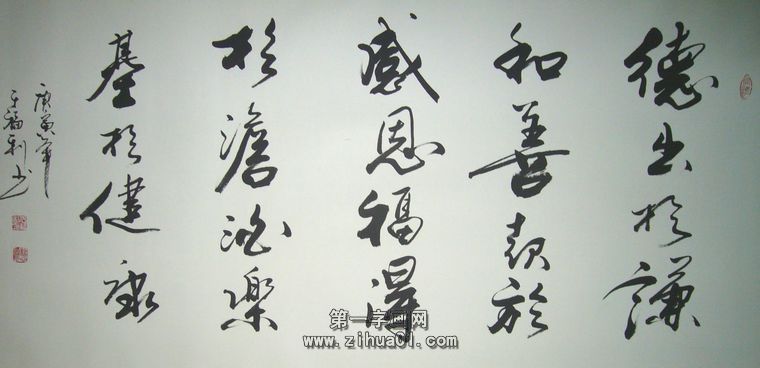 德出於謙
和善報於
感恩福澤
於澹泊樂
基於健康
庚寅年
福利书
第一字画网
www.zihua01.com